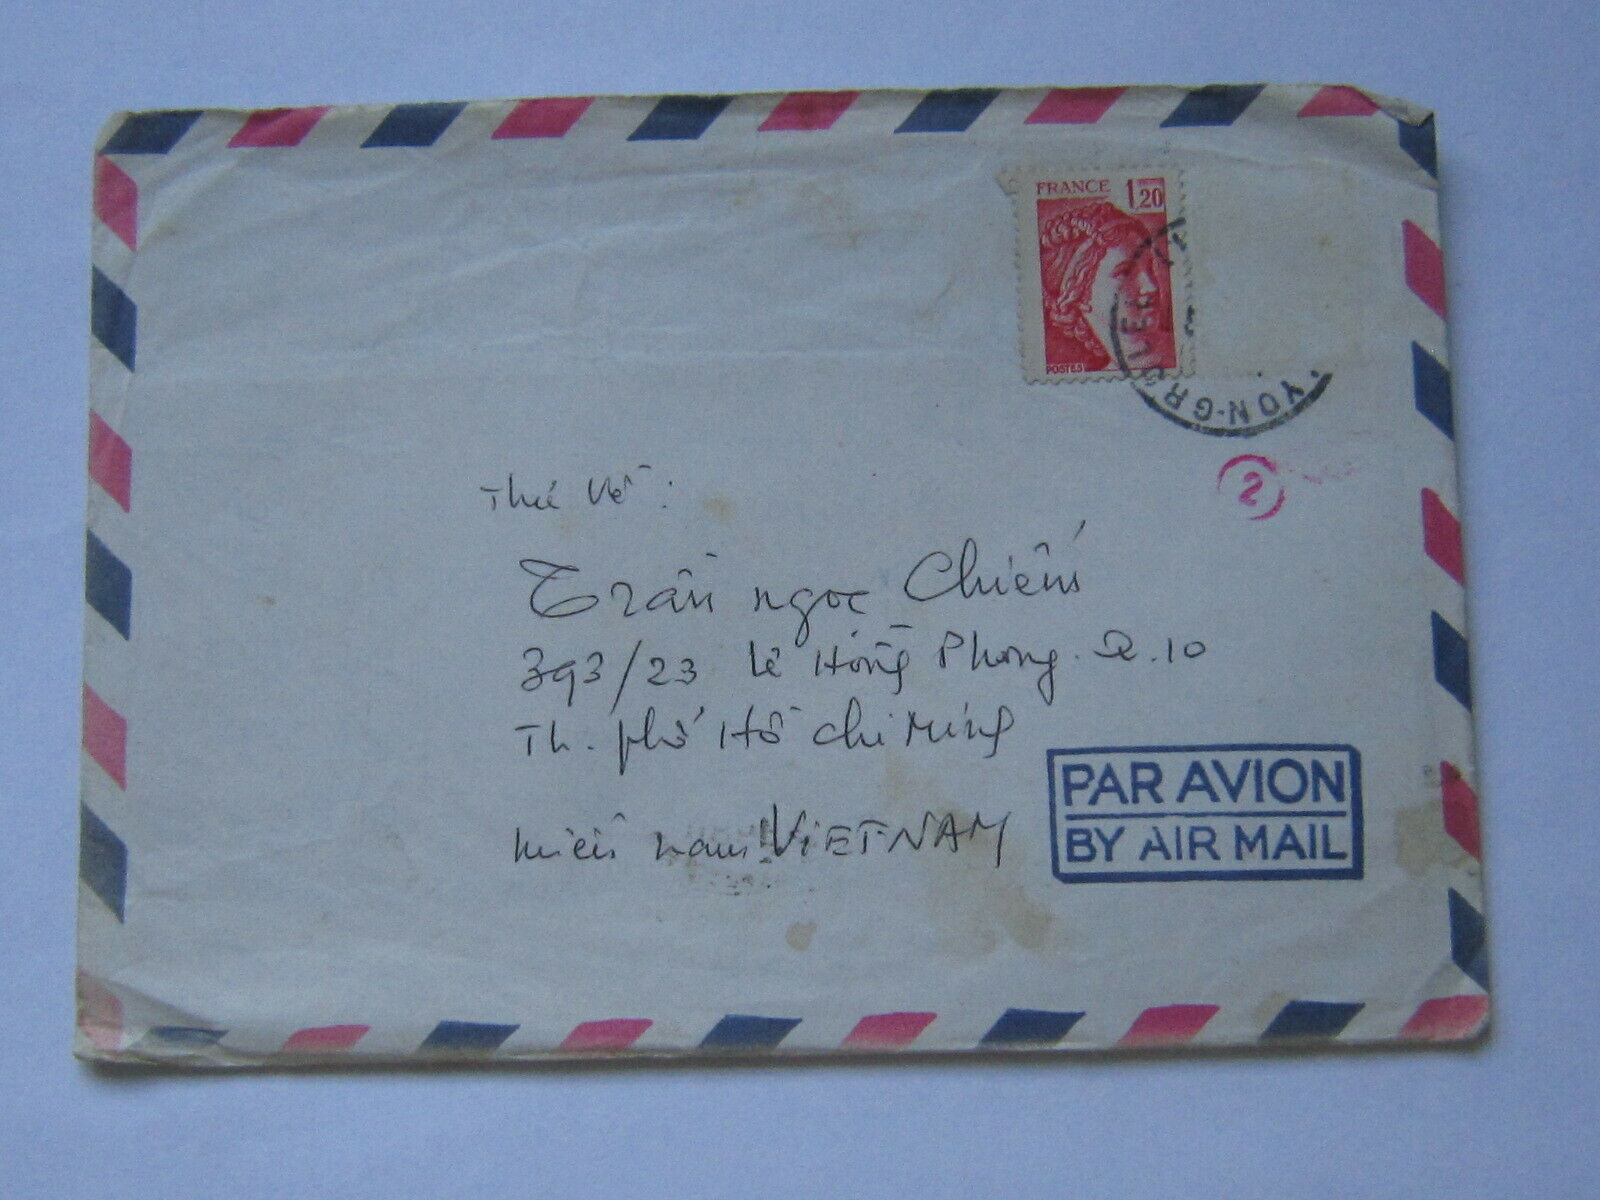 FRANCE 1,20
POSTES
YON-GROLEE
2
Thư Về:
Trần Ngọc Chiến
393/23 Lê Hồng Phong. Q.10
Th. phố Hồ Chí Minh
miền nam VIET-NAM
PAR AVION
BY AIR MAIL